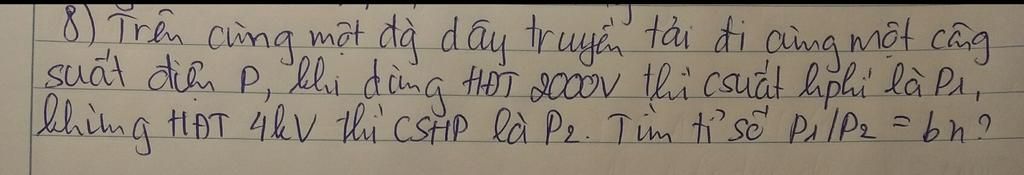 8) Trên cùng một đg dây truyền tải đi cùng một công
suất điện P, khi dùng HĐT 2000V thì csuất hphí là P1,
khi dùng HĐT 4kV thì CSHP là P2. Tìm tỉ số P1/P2 = bn?